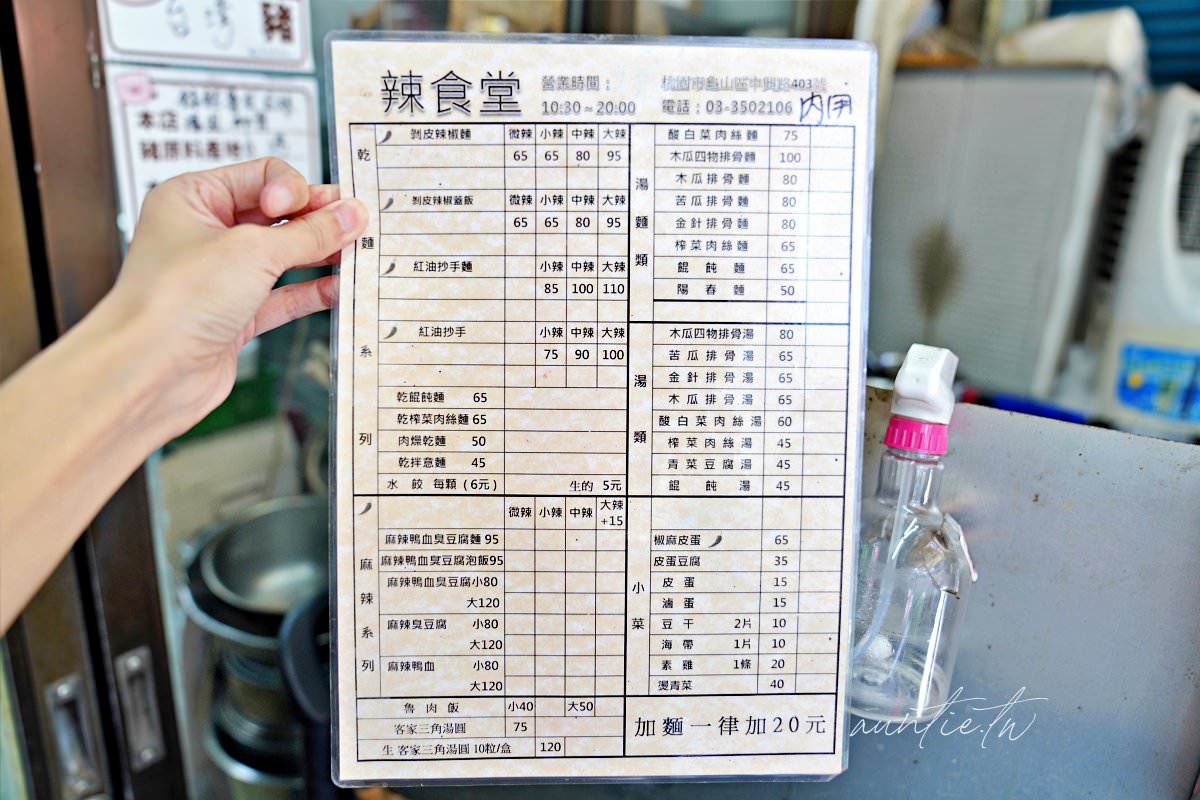 台灣豬
本店
豬原料產地
辣食堂
營業時間：
10:30～20:00
桃園市龜山區中興路403號
電話：03-3502106
內用
乾麵系列
剝皮辣椒麵 微辣 小辣 中辣 大辣
65 65 80 95
剝皮辣椒蓋飯 微辣 小辣 中辣 大辣
65 65 80 95
紅油抄手麵 小辣 中辣 大辣
85 100 110
紅油抄手 小辣 中辣 大辣
75 90 100
乾餛飩麵 65
乾榨菜肉絲麵 65
肉燥乾麵 50
乾拌意麵 45
水餃 每顆(6元) 生的 5元
麻辣系列
微辣 小辣 中辣 大辣+15
麻辣鴨血臭豆腐麵 95
麻辣鴨血臭豆腐泡飯95
麻辣鴨血臭豆腐小80
大120
麻辣臭豆腐 小80
大120
麻辣鴨血 小80
大120
魯肉飯 小40 大50
客家三角湯圓 75
生 客家三角湯圓 10粒/盒 120
湯麵類
酸白菜肉絲麵 75
木瓜四物排骨麵 100
木瓜排骨麵 80
苦瓜排骨麵 80
金針排骨麵 80
榨菜肉絲麵 65
餛飩麵 65
陽春麵 50
湯類
木瓜四物排骨湯 80
苦瓜排骨湯 65
金針排骨湯 65
木瓜排骨湯 65
酸白菜肉絲湯 60
榨菜肉絲湯 45
青菜豆腐湯 45
餛飩湯 45
小菜
椒麻皮蛋 65
皮蛋豆腐 35
皮蛋 15
滷蛋 15
豆干 2片 10
海帶 1片 10
素雞 1條 20
燙青菜 40
加麵一律加20元
auntie.tw